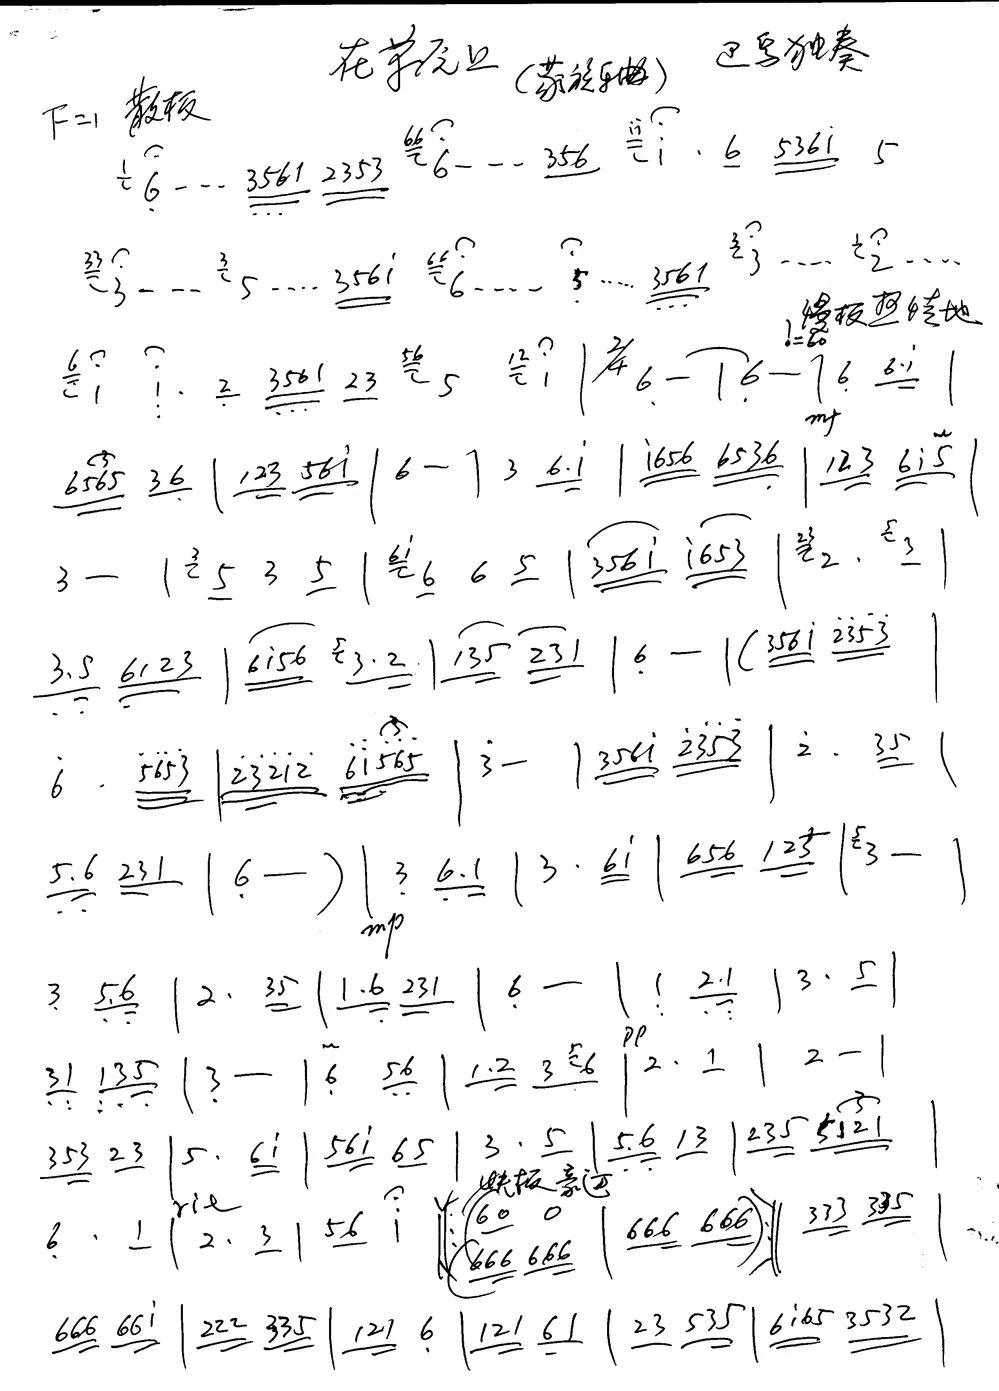 在草原上 (蒙族乐曲) 巴乌独奏
F=1 散板
1 6 - - - 3561 2353 66 6 - - - 356 ii i · 6 536i 5
33 3 - - - 3 5 .... 356i 66 6 .... 5 .... 3561 3 3 .... 1 2 ....
慢板 热情地
6 1 1 · 2 3561 23 56 5 12 1 | 2/4 6 - | 6 - | 6 6.i |
mf
6565 36 | 123 56i | 6 - | 3 6.i | i656 6536 | 123 6i5 |
3 - | 3 5 3 5 | 6i 6 6 5 | 356i i653 | 23 2 · 5 3 |
3.5 6123 | 6i56 5 3.2 | 135 231 | 6 - | (356i 2353 |
6 · 5653 | 23212 6i565 | 3 - | 356i 2353 | 2 · 35 |
5.6 231 | 6 - ) | 3 6.1 | 3 · 6i | 656 123 | 5 3 - |
mp
3 5.6 | 2 · 35 | 1.6 231 | 6 - | 1 2.1 | 3 · 5 |
pp
31 135 | 3 - | 6 56 | 1.2 3 5 6 | 2 · 1 | 2 - |
353 23 | 5 · 6i | 56i 65 | 3 · 5 | 5.6 13 | 235 3521 |
rit 快板 豪迈
6 · 1 | 2 · 3 | 56 i 60 0 | 666 666 | 333 335 |
666 666
666 66i | 222 335 | 121 6 | 121 61 | 23 535 | 6i65 3532 |